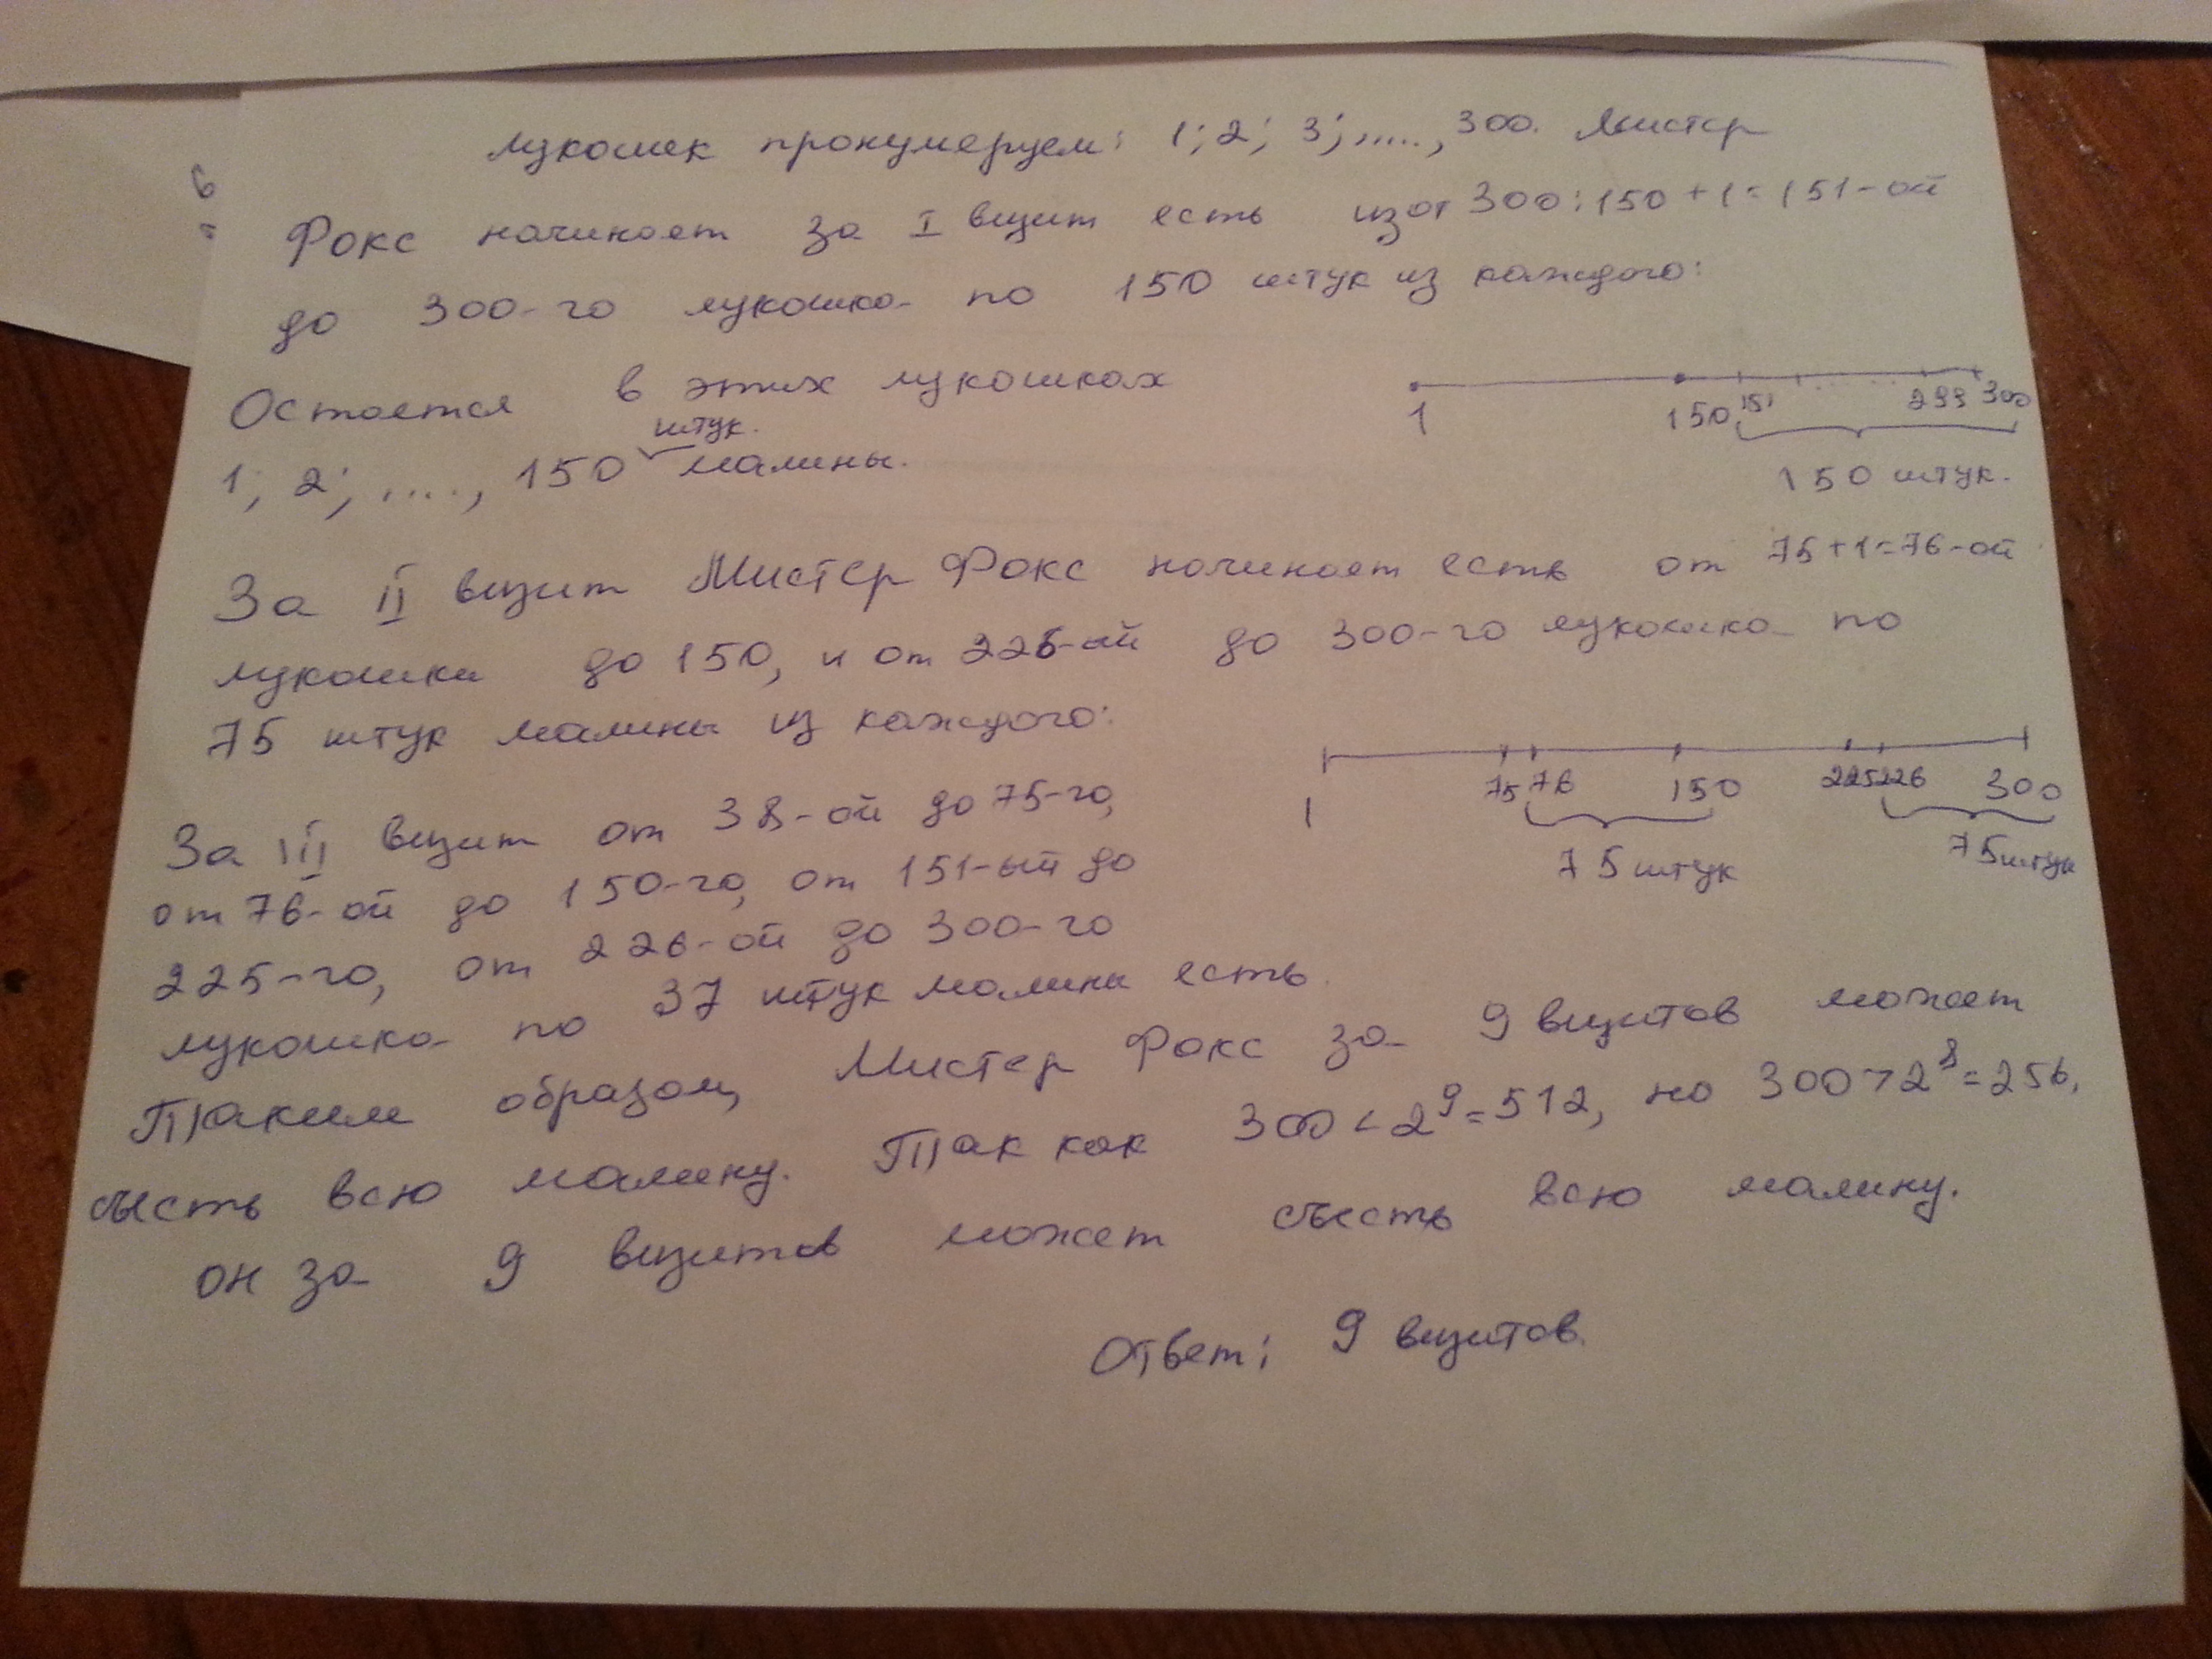 лукошек пронумеруем: 1; 2; 3; ....., 300. Мистер
6
Фокс начинает за I визит есть из от 300:150+1=151-ой
до 300-го лукошка по 150 штук из каждого:
Остается в этих лукошках
штук.
1; 2; ...., 150 малины.
1 150 151 299 300
150 штук.
За II визит Мистер Фокс начинает есть от 75+1=76-ой
лукошки до 150, и от 226-ой до 300-го лукошка по
75 штук малины из каждого:
1 75 76 150 225 226 300
75 штук 75 штук
За III визит от 38-ой до 75-го,
от 76-ой до 150-го, от 151-ый до
225-го, от 226-ой до 300-го
лукошка по 37 штук малины есть.
Таким образом, Мистер Фокс за 9 визитов может
съесть всю малину. Так как 300<2⁹=512, но 300>2⁸=256,
он за 9 визитов может съесть всю малину.
Ответ: 9 визитов.